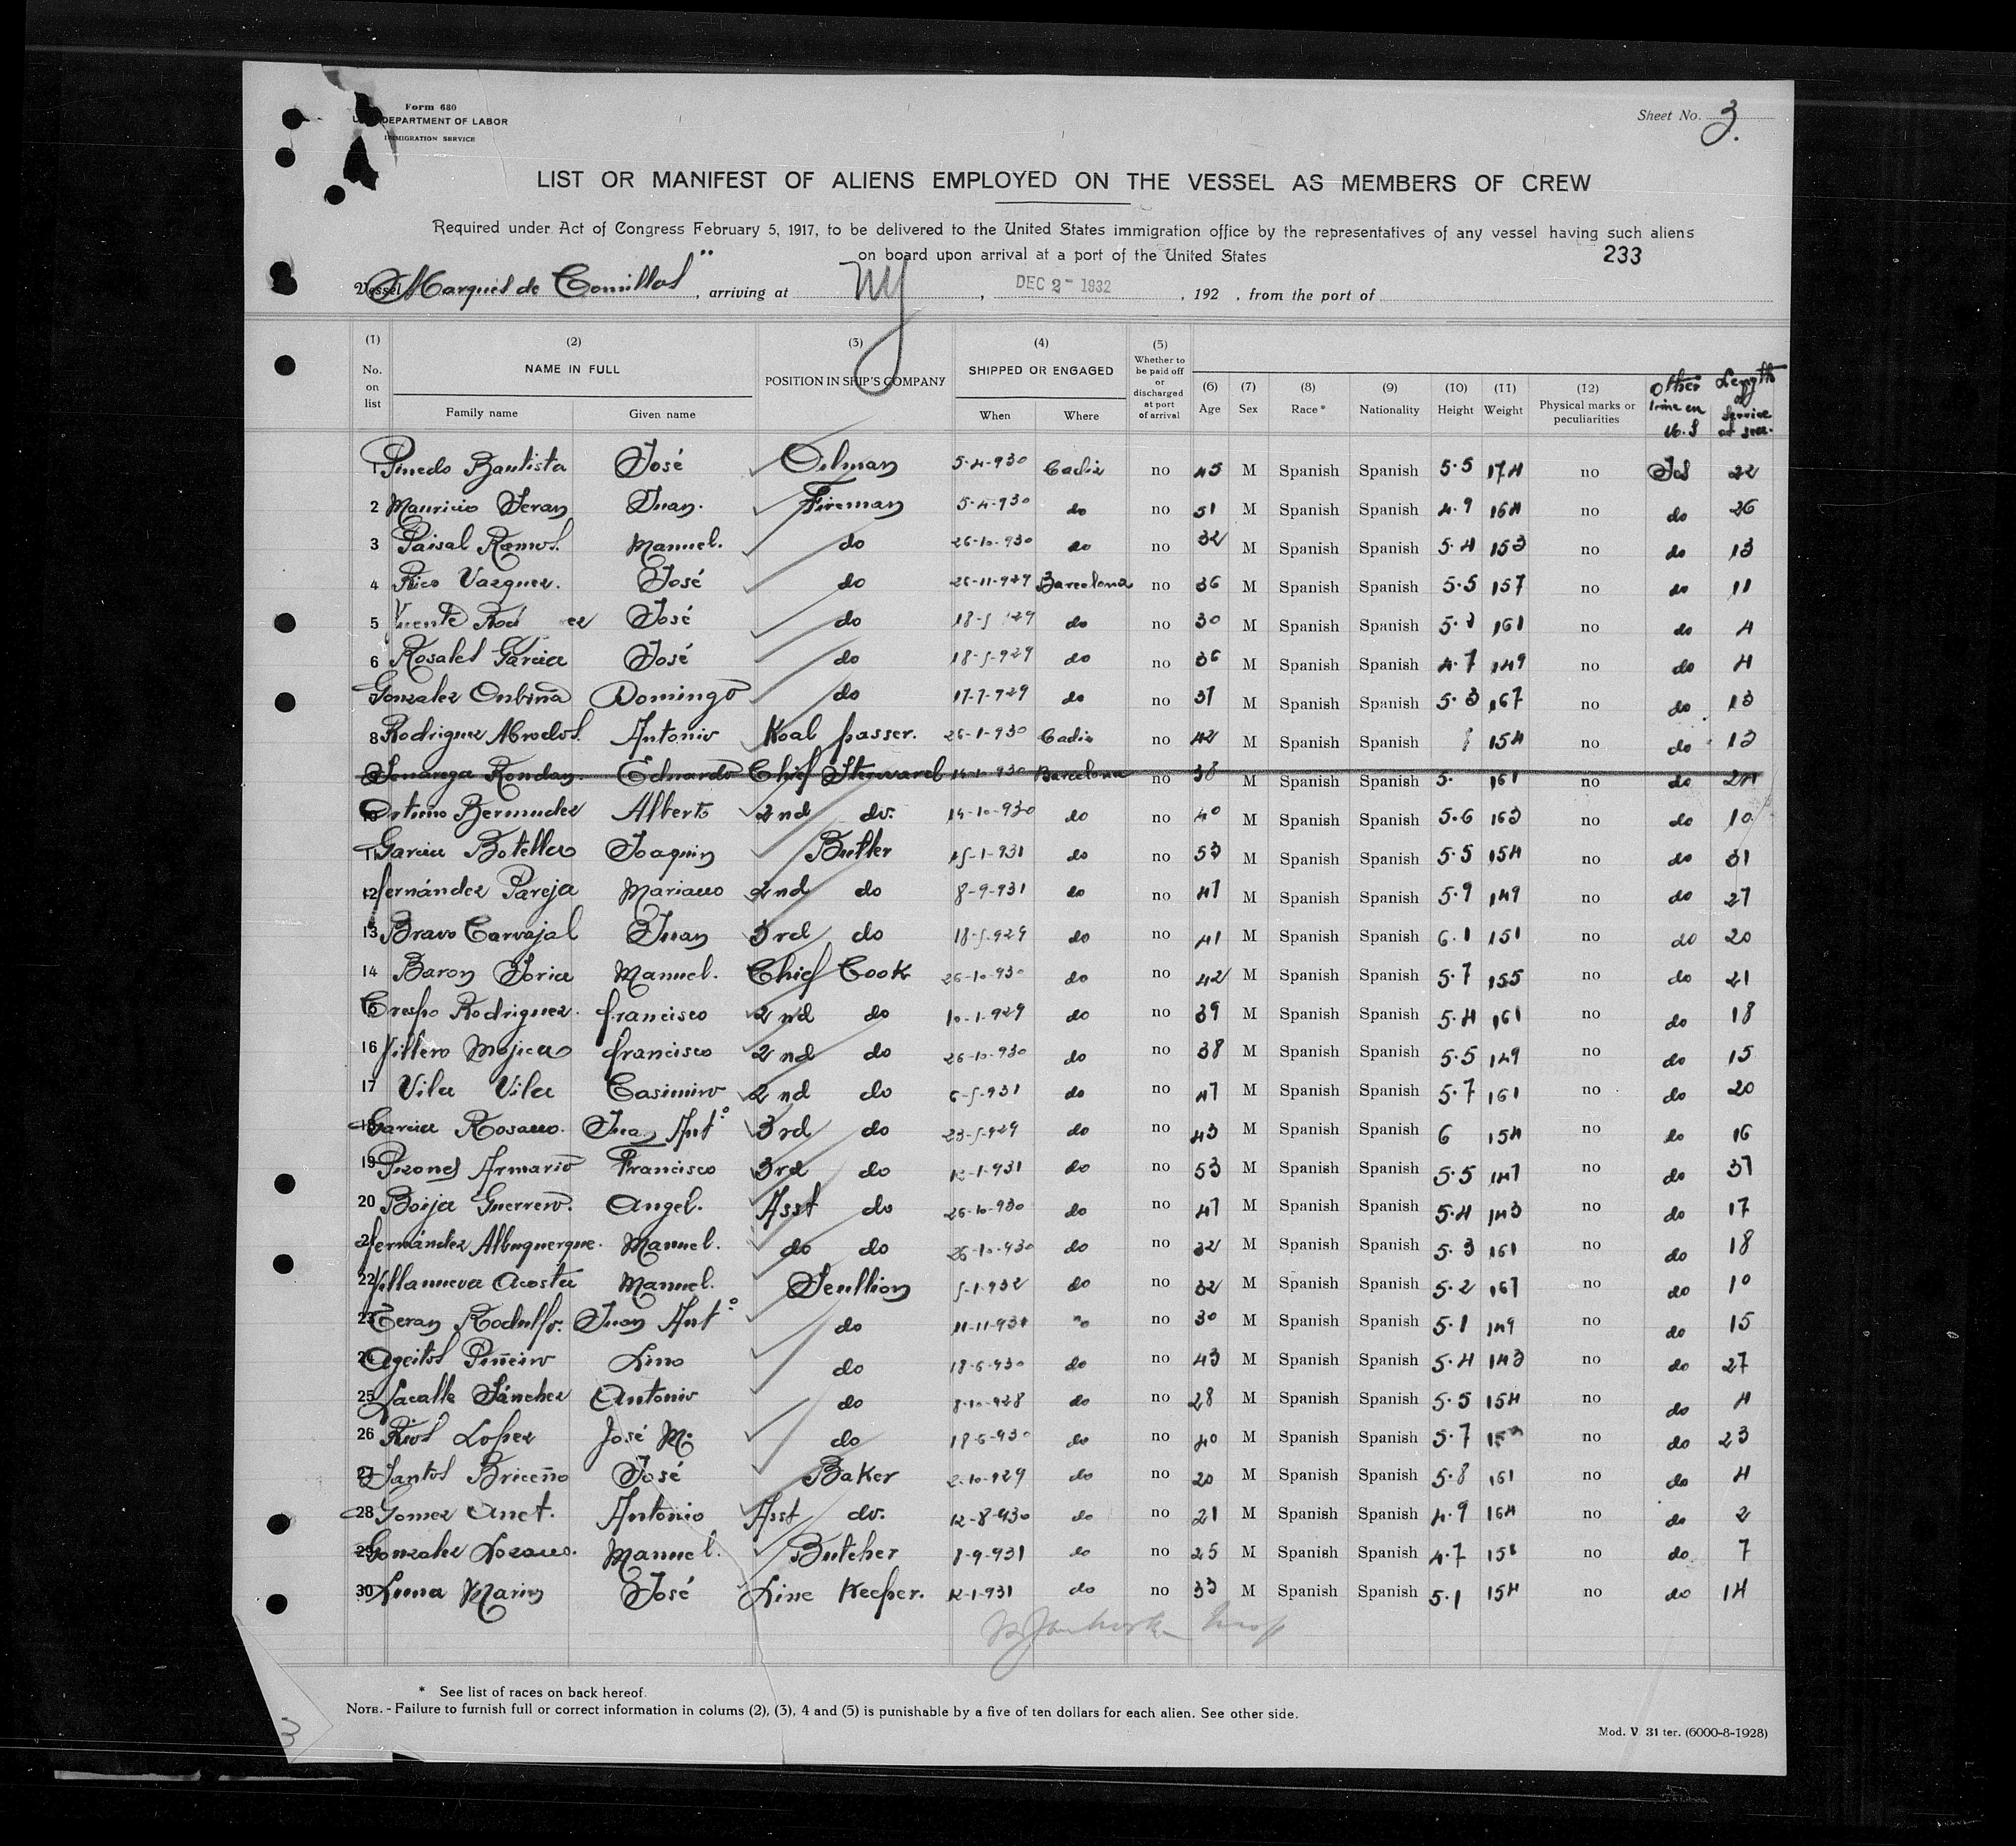 Form 680
DEPARTMENT OF LABOR
IMMIGRATION SERVICE
Sheet No. 3.
LIST OR MANIFEST OF ALIENS EMPLOYED ON THE VESSEL AS MEMBERS OF CREW
Required under Act of Congress February 5, 1917, to be delivered to the United States immigration office by the representatives of any vessel having such aliens
on board upon arrival at a port of the United States
233
Vessel Marqués de Comillas", arriving at NY, DEC 2- 1932, 192 , from the port of
(1) (2) (3) (4) (5)
No. on list NAME IN FULL POSITION IN SHIP'S COMPANY SHIPPED OR ENGAGED Whether to be paid off or discharged at port of arrival (6) Age (7) Sex (8) Race * (9) Nationality (10) Height (11) Weight (12) Physical marks or peculiarities Other time en U.S Length of service at sea.
Family name Given name When Where
1 Pinedo Bautista José Oilman 5-4-930 Cadiz no 45 M Spanish Spanish 5.5 174 no 22
2 Mauricio Teran Juan. Fireman 5-4-930 do no 51 M Spanish Spanish 4.9 164 no do 26
3 Paisal Ramos. Manuel. do 26-10-930 do no 32 M Spanish Spanish 5.4 153 no do 13
4 Rico Vazquez. José do 26-11-929 Barcelona no 36 M Spanish Spanish 5.5 157 no do 11
5 José do do no 30 M Spanish Spanish 161 no do 4
6 Rosales Garcia José do 18-5-929 do no 36 M Spanish Spanish 4.7 149 no do 4
Gonzalez Domingo do 17-7-929 do no 37 M Spanish Spanish 5.3 167 no do 13
8 Rodriguez Antonio Koal passer. 26-1-930 Cadiz no 42 M Spanish Spanish 154 no do 13
Eduardo Chief Steward 14-10-930 Barcelona no 38 M Spanish Spanish 5. 161 no do
10 Bermudez Alberto 2nd do. 14-10-930 do no 40 M Spanish Spanish 5.6 163 no do 10
11 Garcia Botella Joaquin Butler 15-1-931 do no 53 M Spanish Spanish 5.5 154 no do 31
12 fernández Pareja Mariano 2nd do 8-9-931 do no 47 M Spanish Spanish 5.9 149 no do 27
13 Bravo Carvajal Juan 3rd do 18-5-929 do no 41 M Spanish Spanish 6.1 151 no do 20
14 Baron Soria Manuel. Chief Cook 26-10-930 do no 42 M Spanish Spanish 5.7 155 no do 21
15 Crespo Rodriguez. francisco 2nd do 10-1-929 do no 39 M Spanish Spanish 5.4 161 no do 18
16 Mojica francisco 2nd do 26-10-930 do no 38 M Spanish Spanish 5.5 149 no do 15
17 Vila Vila Casimiro 2nd do 6-5-931 do no 47 M Spanish Spanish 5.7 161 no do 20
18 Garcia Rosano. Juan Antº 3rd do 23-5-929 do no 43 M Spanish Spanish 6 154 no do 16
19 Armario Francisco 3rd do 12-1-931 do no 53 M Spanish Spanish 5.5 147 no do 37
20 Boija Guerrero. Angel. Asst do 26-10-930 do no 47 M Spanish Spanish 5.4 143 no do 17
21 fernández Albuquerque. Manuel. do do 26-10-930 do no 32 M Spanish Spanish 5.3 161 no do 18
22 Villanueva Acosta Manuel. Scullion 5-1-932 do no 32 M Spanish Spanish 5.2 167 no do 10
23 Teran Rodulfo. Juan Antº do 11-11-931 no 30 M Spanish Spanish 5.1 149 no do 15
24 Ageitos Piñeiro Lino do 18-6-930 do no 43 M Spanish Spanish 5.4 143 no do 27
25 Lacalle Sánchez Antonio do 8-10-928 do no 28 M Spanish Spanish 5.5 154 no do 4
26 Rios Lopez José Mª do 18-6-930 do no 40 M Spanish Spanish 5.7 no do 23
27 Santos Briceño José Baker 2-10-929 do no 20 M Spanish Spanish 5.8 161 no do 4
28 Gomez Anet. Antonio Asst do. 12-8-930 do no 21 M Spanish Spanish 4.9 164 no do 2
29 Gonzalez Lozano. Manuel. Butcher 8-9-931 do no 25 M Spanish Spanish 4.7 151 no do 7
30 Luna Marin José Line Keeper. 12-1-931 do no 33 M Spanish Spanish 5.1 154 no do 14
* See list of races on back hereof.
NOTE. - Failure to furnish full or correct information in colums (2), (3), 4 and (5) is punishable by a five of ten dollars for each alien. See other side.
Mod. V 31 ter. (6000-8-1928)
3